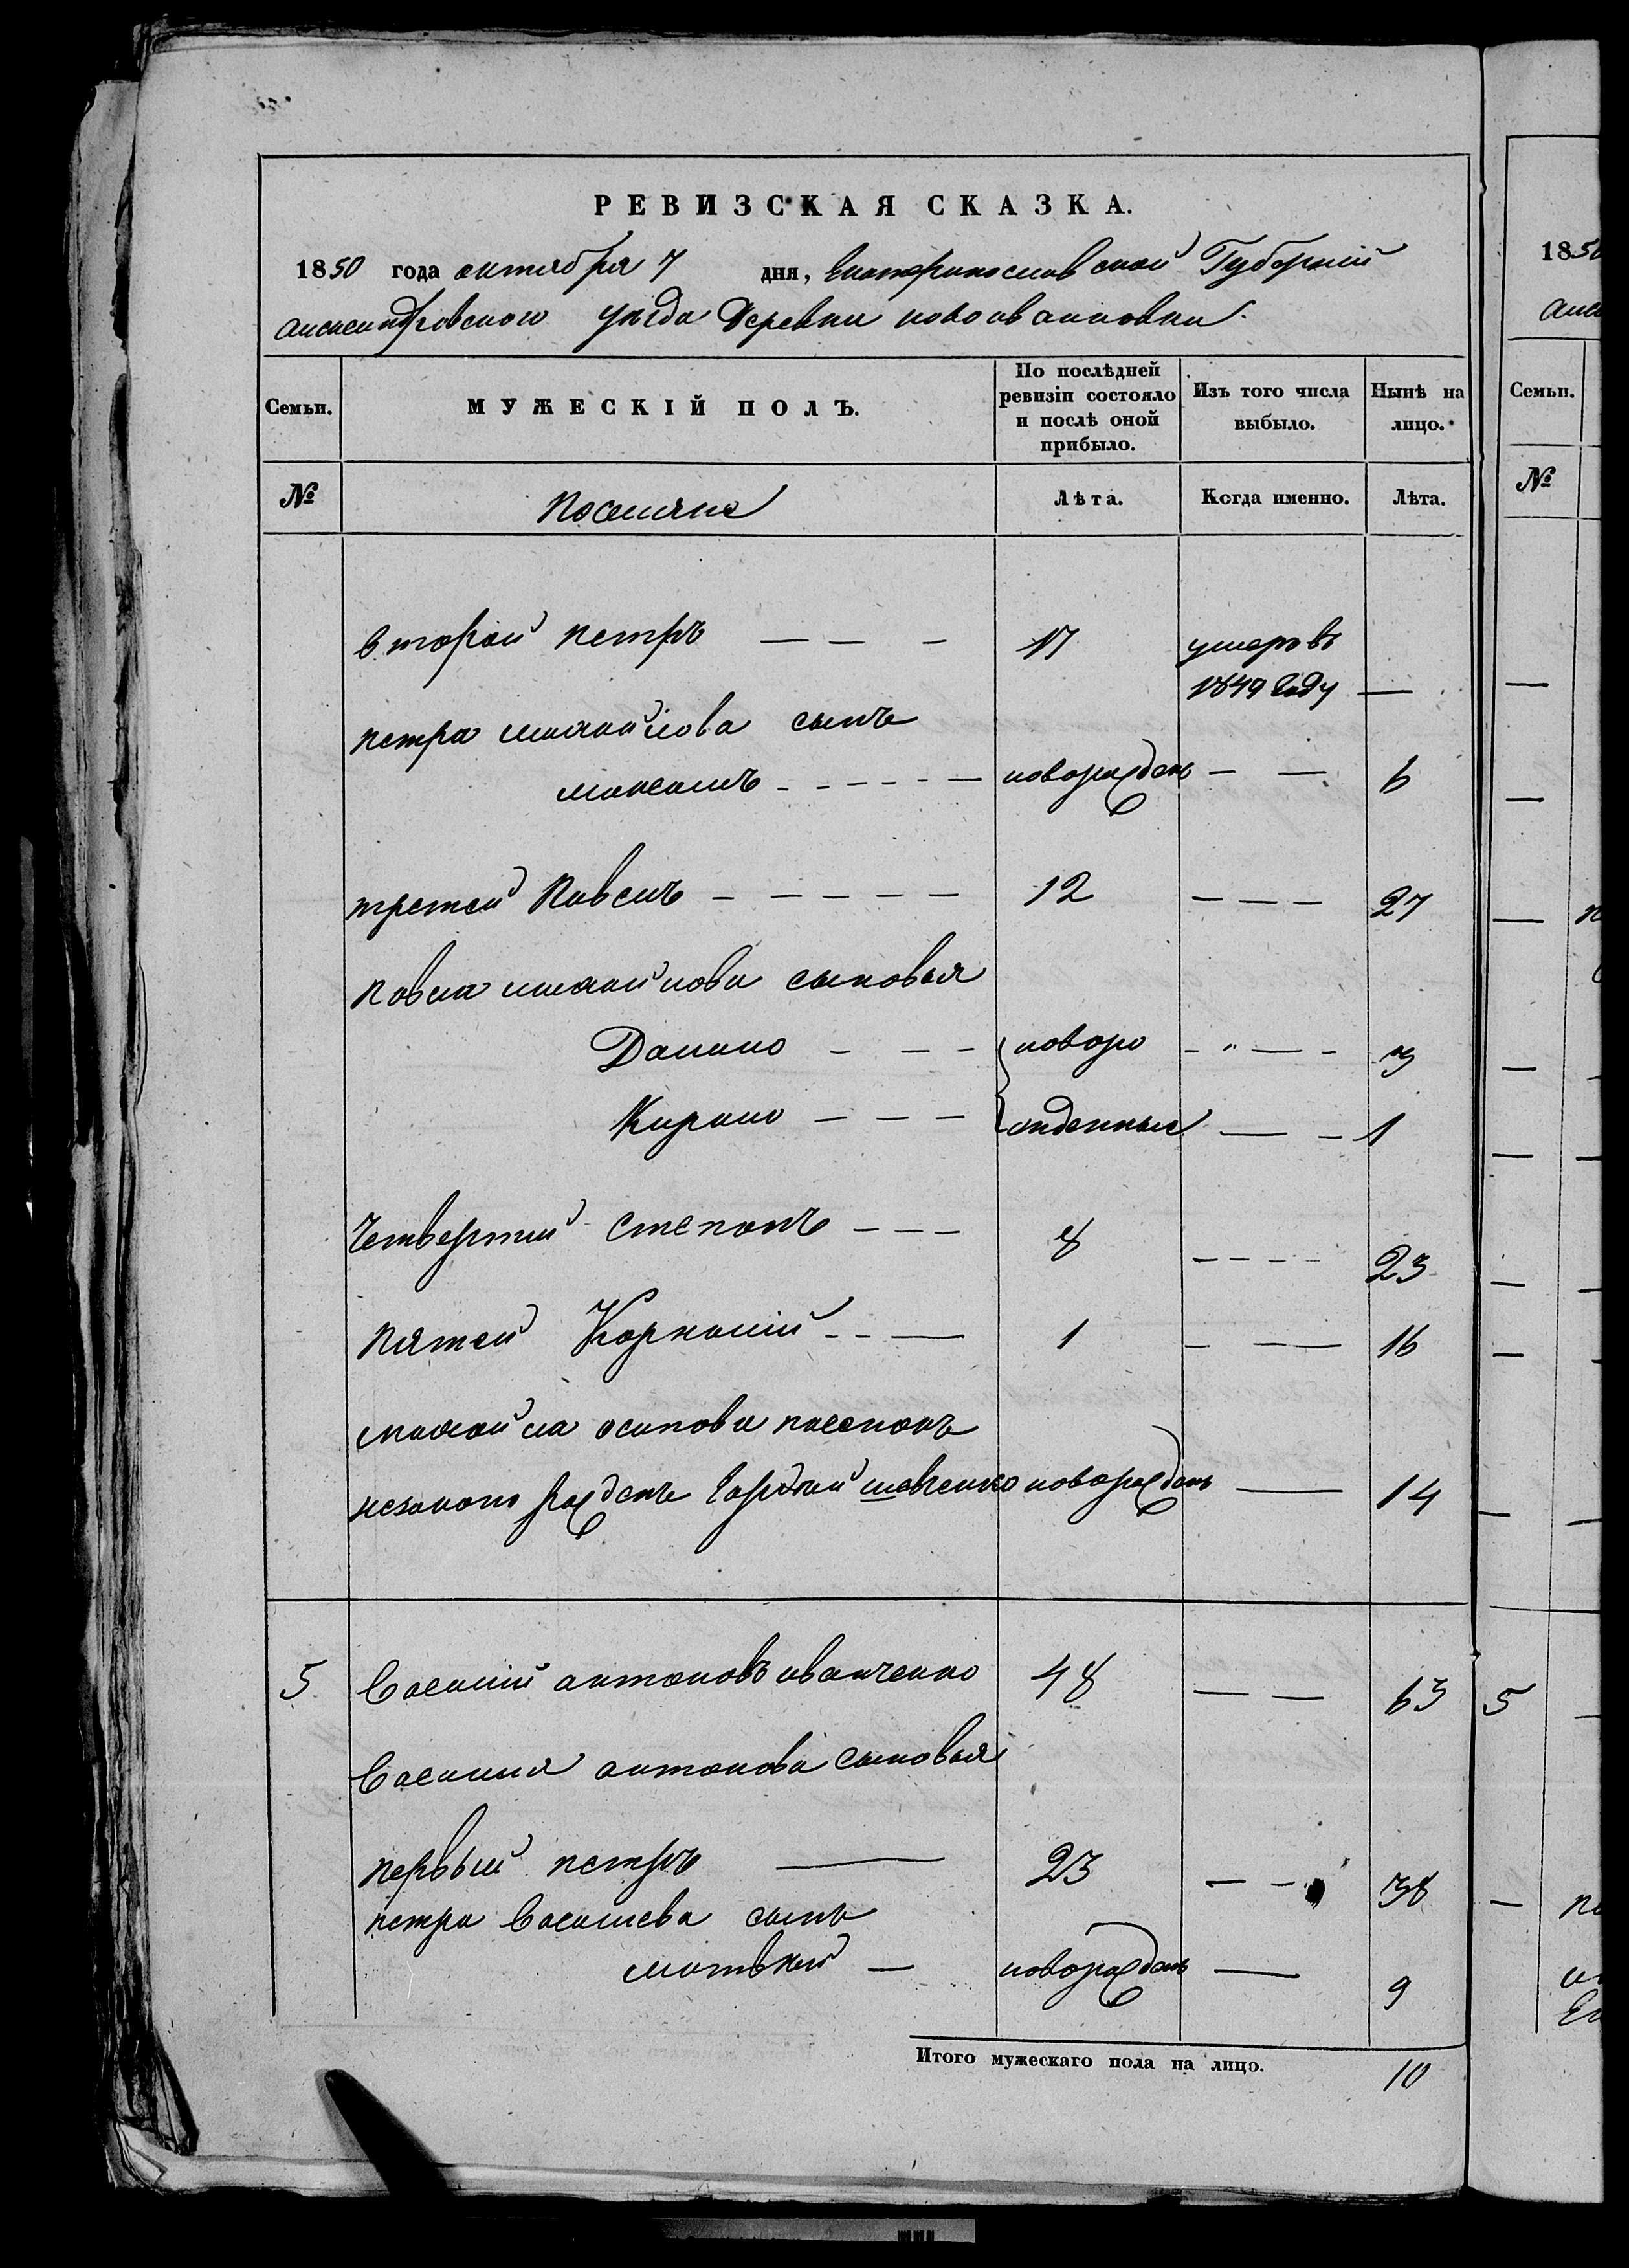 РЕВИЗСКАЯ СКАЗКА.
1850 года октября 7 дня, Екатеринославской Губерніи
александровского уезда Деревни новоивановки
Семьи. МУЖЕСКІЙ ПОЛЪ. По послѣдней ревизіи состояло и послѣ оной прибыло. Изъ того числа выбыло. Нынѣ на лицо.
№ Поселяне Лѣта. Когда именно. Лѣта.
второй петръ — — — 17 умеръ въ
1849 году —
петра михайлова сынъ
максимъ - - - - - — новорожденъ — — 6
третей Павелъ — — — — — 12 — — — 27
Павла михайлова сыновья
Данило — — — новоро - " — - 3
Кирило — — — жденныя — - 1
Четвертий степанъ — — — 8 - - - - 23
Пятей Корнилій - - — 1 - — — 16
михайла осипова пасенокъ
незаконо рожденъ Гордѣй шевченко новорожденъ — 14
5 Василий антоновъ иванченко 48 — — 63
Василия антонова сыновья
первый петръ — 23 — - 38
петра Васильева сынъ
матвѣй — новорожденъ — 9
Итого мужескаго пола на лицо. 10
1850
Семьи.
№
5